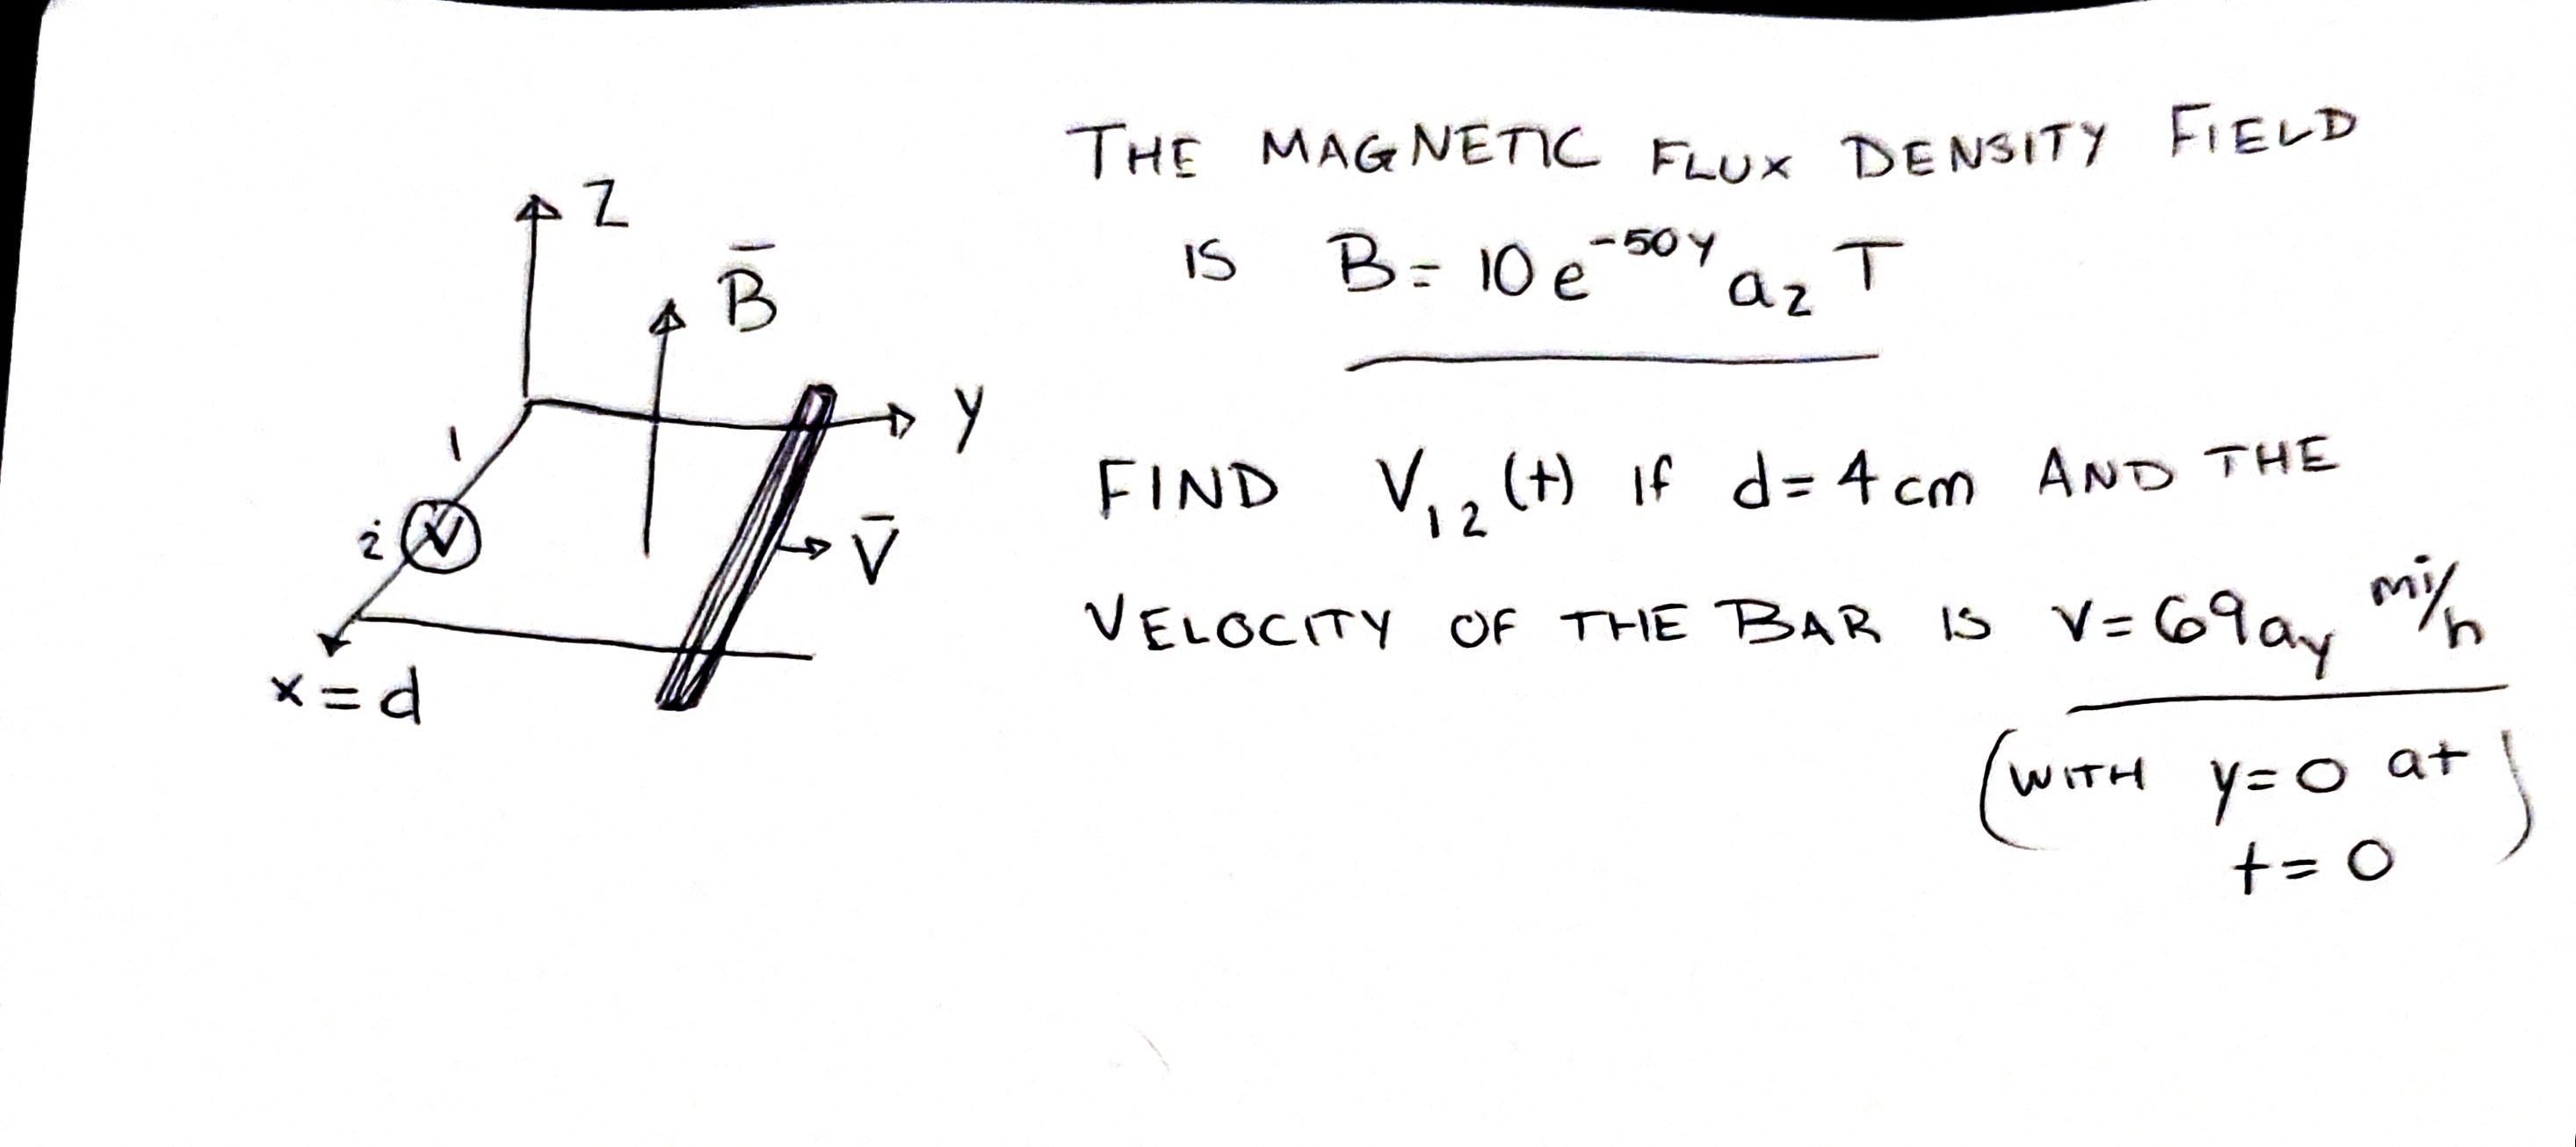 THE MAGNETIC FLUX DENSITY FIELD
IS B = 10 e^-50y a_z T
FIND V_12 (t) IF d = 4 cm AND THE
VELOCITY OF THE BAR IS V = 69 a_y mi/h
(WITH y = 0 at
t = 0)
Z
B̄
y
1
2
V
V̄
x = d